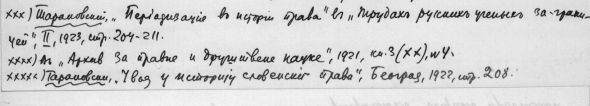 xxx) Тарановский, „Періодизація въ исторіи права" въ „Трудахъ русскихъ ученыхъ за-грани-
цей", II, 1923, стр. 204-211.
xxxx) Въ „Архив за правне и друштвене науке", 1921, кн. 3 (XX), №4.
xxxxx) Тарановски, „Увод у историју словенских права", Београд, 1922, стр. 208.